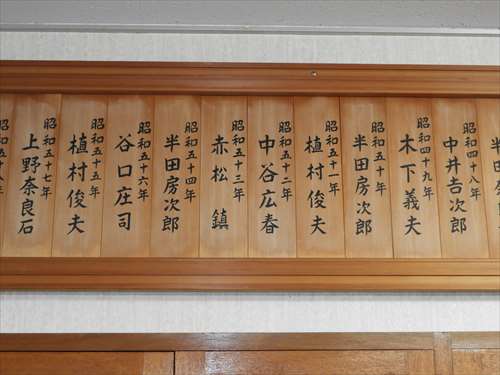 半田
昭和四十八年
中井吉次郎
昭和四十九年
木下義夫
昭和五十年
半田房次郎
昭和五十一年
植村俊夫
昭和五十二年
中谷広春
昭和五十三年
赤松 鎮
昭和五十四年
半田房次郎
昭和五十六年
谷口庄司
昭和五十五年
植村俊夫
昭和五十七年
上野奈良石